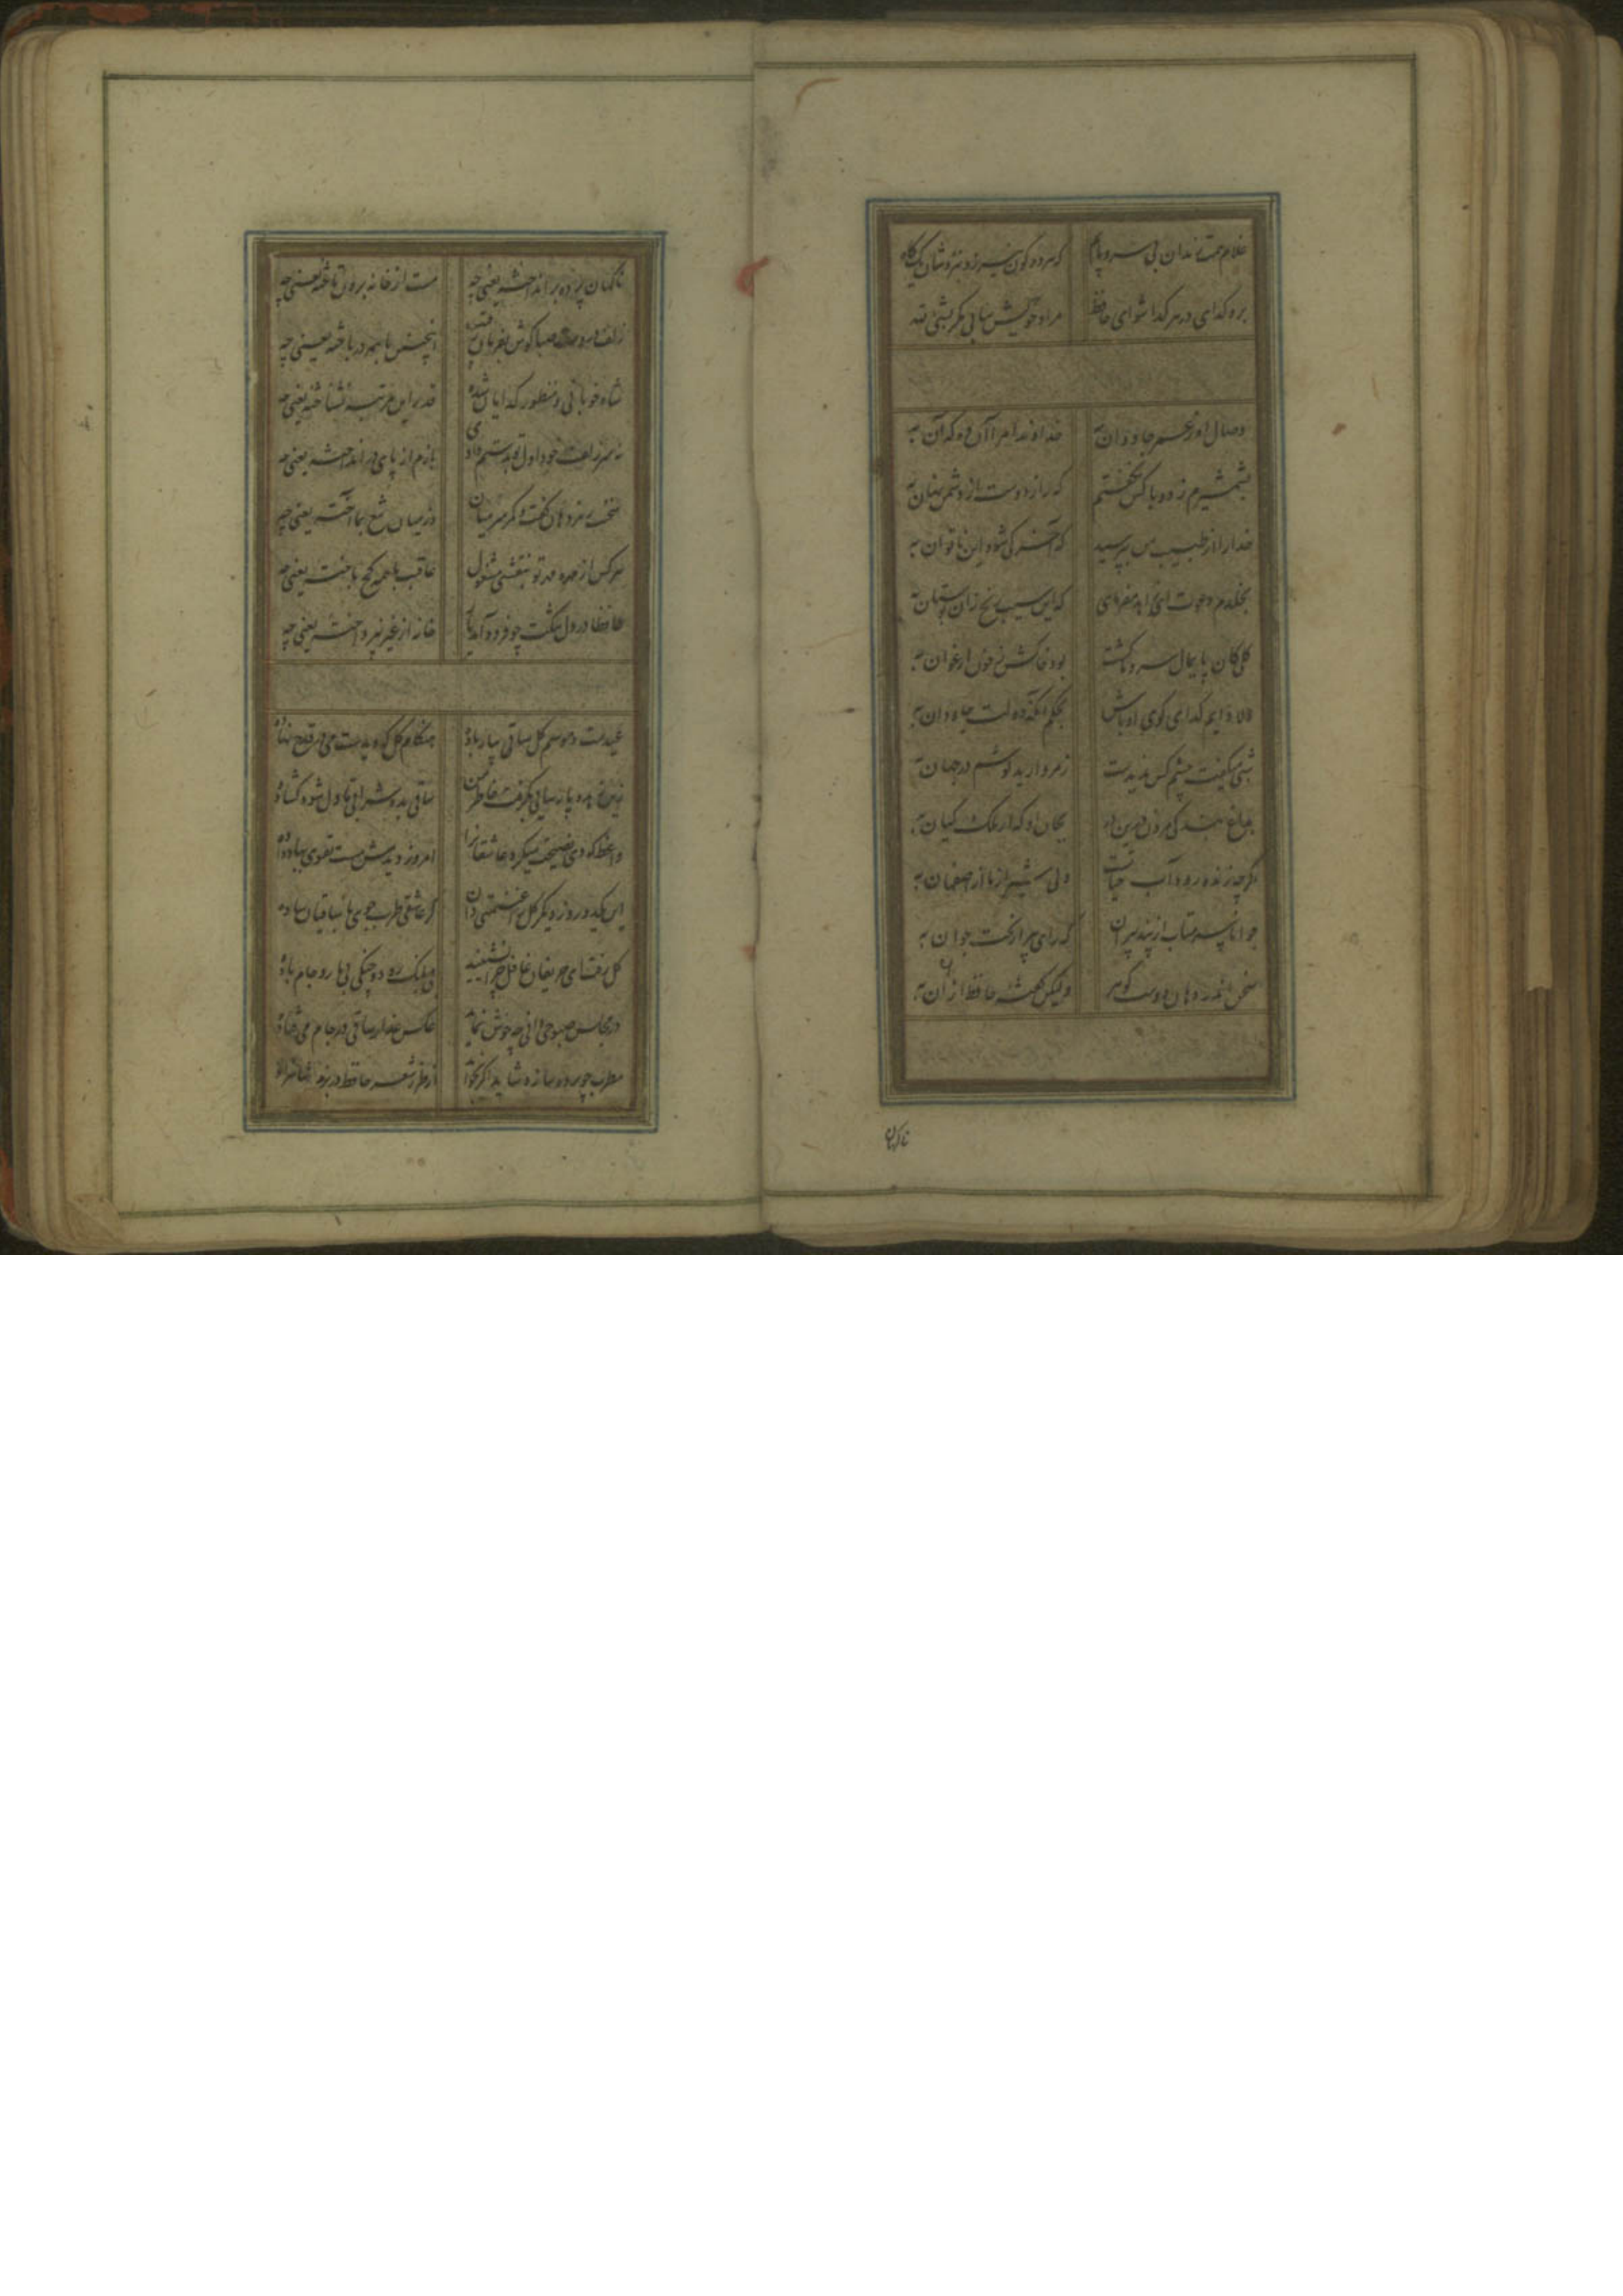 غلام همت رندان بی سر و پایم که هر دو کون نیرزد بنزدشان یک کاه
برو کدای در هر کدا شو ای حافظ مراد خویش نیابی مکر بشئ لله
وصال او ز عمر جاودان به خداوندا مرا آن ده که آن به
بشمشیرم زد و با کس نکفتم که راز دوست از دشمن نهان به
خدا را از طبیب من بپرسید که آخر کی شود این ناتوان به
بخلدم دعوت ای زاهد مفرمای که این سیب زنخ زان بوستان به
کلی کان پایمال سرو ما کشت بود خاکش ز خون ارغوان به
دلا دایم کدای کوی او باش بحکم آنکه دولت جاودان به
شبی میکفت چشم کس ندیدست ز مروارید کوشم در جهان به
بداغ بندکی مردن درین در بجان او که از ملک کیان به
اکرچه زنده رود آب حیاتست ولی شیراز ما از اصفهان به
جوانا سر متاب از پند پیران که رای پیر از بخت جوان به
سخن اندر دهان دوست کوهر ولیکن کفته حافظ از آن به
ناکهان
ناکهان پرده بر انداخته یعنی چه مست از خانه برون تاخته یعنی چه
زلف در دست صبا کوش بفرمان رقیب اینچنین با همه در باخته یعنی چه
شاه خوبانی و منظور کدایان شده قدر این مرتبه نشناخته یعنی چه
نه سر زلف خود اول تو بدستم دادی بازم از پای در انداخته یعنی چه
سخنت رمز دهان کفت و کمر سر میان وز میان تیغ بما آخته یعنی چه
هر کس از مهره مهر تو بنقشی مشغول عاقبت با همه کج باخته یعنی چه
حافظا در دل تنکت چو فرود آمد یار خانه از غیر نپرداخته یعنی چه
عیدست و موسم کل ساقی بیار باده هنکام کل که دیدست می در قدح نهاده
زین زهد و پارسایی بکرفت خاطر من ساقی بده شرابی تا دل شود کشاده
واعظ که دی نصیحت میکرد عاشقانرا امروز دیدمش مست تقوی بباد داده
این یکدو روز دیکر کل را غنیمتی دان کر عاشقی طرب جوی با ساقیان ساده
کل رفت ای حریفان غافل چرا نشینید بی بانک رود و چنکی بی یار و جام باده
در مجلس صبوحی دانی چه خوش نماید عکس عذار ساقی در جام می فتاده
مطرب چو پرده سازد شاید اکر بخواند از طرز شعر حافظ در بزم شاهزاده